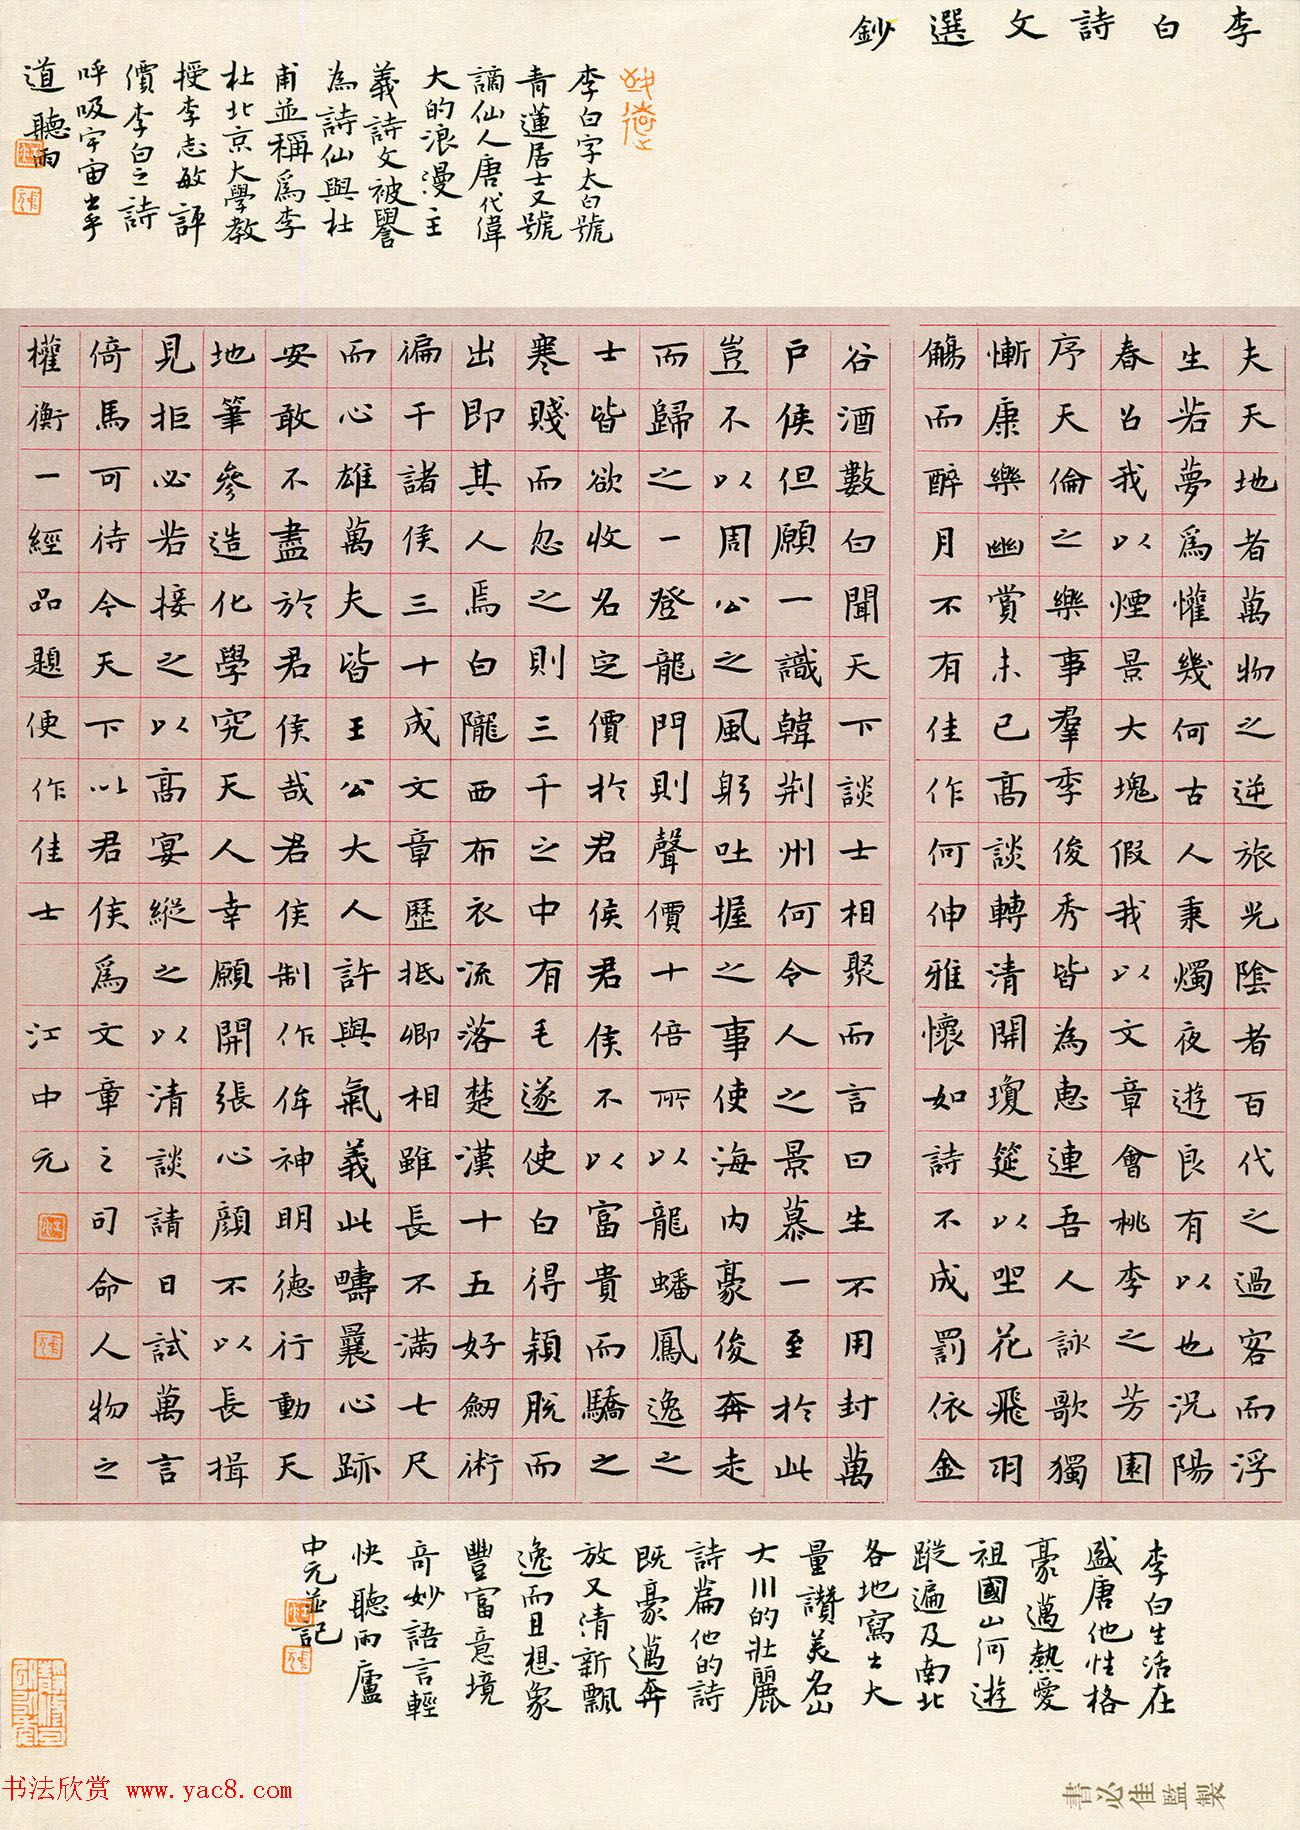 李白詩文選鈔
李白字太白號
青蓮居士又號
謫仙人唐代偉
大的浪漫主
義詩文被譽
為詩仙與杜
甫並稱爲李
杜北京大學教
授李志敏評
價李白之詩
呼吸宇宙出乎
道 聽雨
夫天地者萬物之逆旅光陰者百代之過客而浮
生若夢爲懽幾何古人秉燭夜遊良有以也況陽
春召我以煙景大塊假我以文章會桃李之芳園
序天倫之樂事羣季俊秀皆為惠連吾人詠歌獨
慚康樂幽賞未已高談轉清開瓊筵以坐花飛羽
觴而醉月不有佳作何伸雅懷如詩不成罰依金
谷酒數白聞天下談士相聚而言曰生不用封萬
戶侯但願一識韓荊州何令人之景慕一至於此
豈不以周公之風躬吐握之事使海內豪俊奔走
而歸之一登龍門則聲價十倍所以龍蟠鳳逸之
士皆欲收名定價於君侯君侯不以富貴而驕之
寒賤而忽之則三千之中有毛遂使白得穎脫而
出即其人焉白隴西布衣流落楚漢十五好劒術
徧干諸侯三十成文章歷抵卿相雖長不滿七尺
而心雄萬夫皆王公大人許與氣義此疇曩心跡
安敢不盡於君侯哉君侯制作侔神明德行動天
地筆參造化學究天人幸願開張心顏不以長揖
見拒必若接之以高宴縱之以清談請日試萬言
倚馬可待今天下以君侯爲文章之司命人物之
權衡一經品題便作佳士 江中元
李白生活在
盛唐他性格
豪邁熱愛
祖國山河遊
蹤遍及南北
各地寫出大
量讚美名山
大川的壯麗
詩篇他的詩
既豪邁奔
放又清新飄
逸而且想象
豐富意境
奇妙語言輕
快 聽雨廬
中元並記
書必佳監製
书法欣赏 www.yac8.com